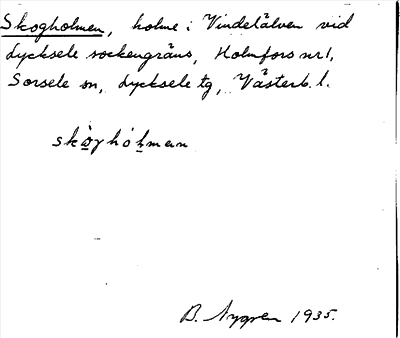 Skogholmen, holme i Vindelälven vid
Lycksele sockengräns, Holmfors nr 1,
Sorsele sn, Lycksele tg, Västerb. l.
B. Nygren 1935.